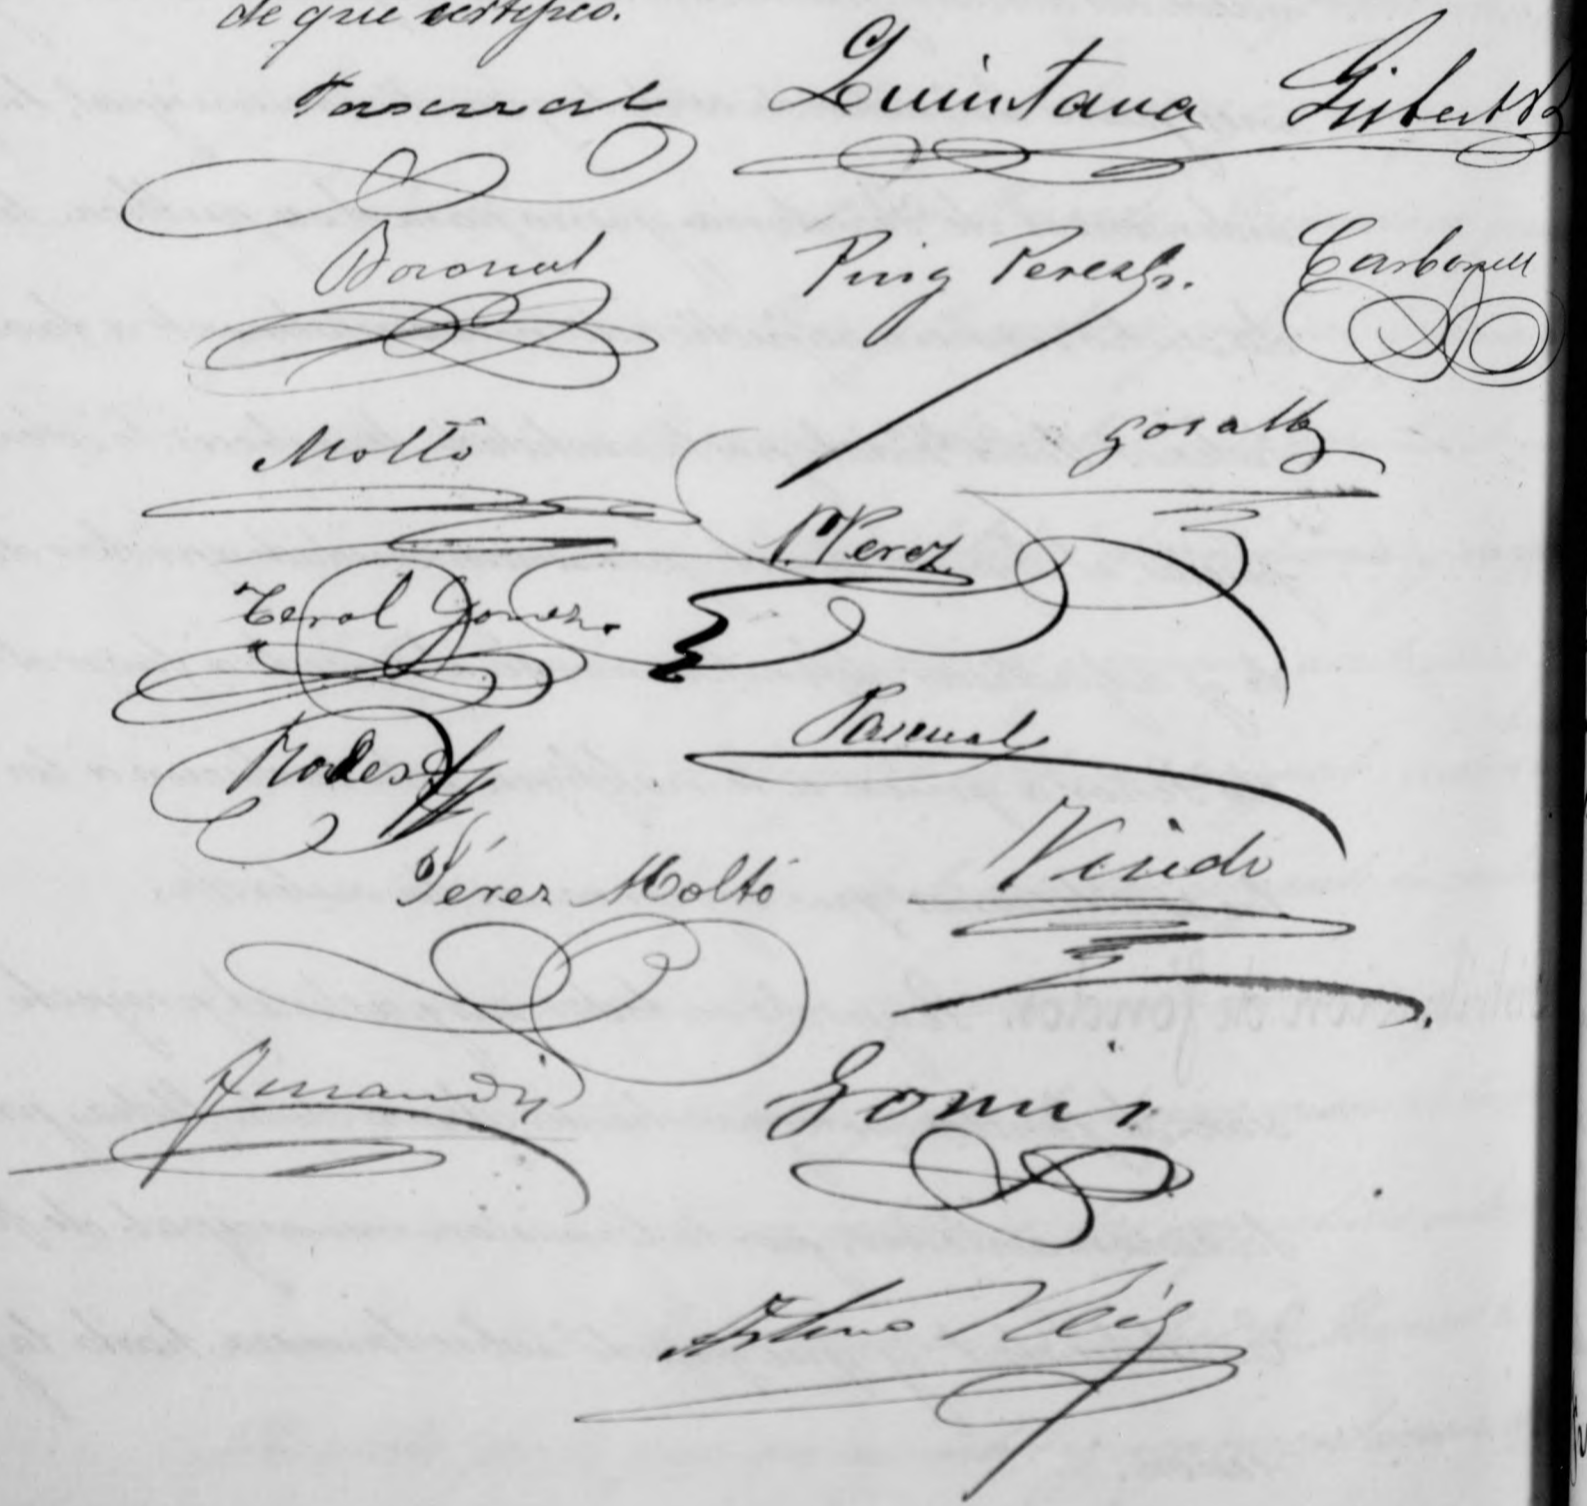 de que certifico.
Pascual Quintana Gisbert
Boronat Puig Perez Carbonell
Moltó Gosalbez
P. Perez
Terol Gomez.
Pascual
Rodes
Pérez Moltó
Gomis.
Arturo Reig